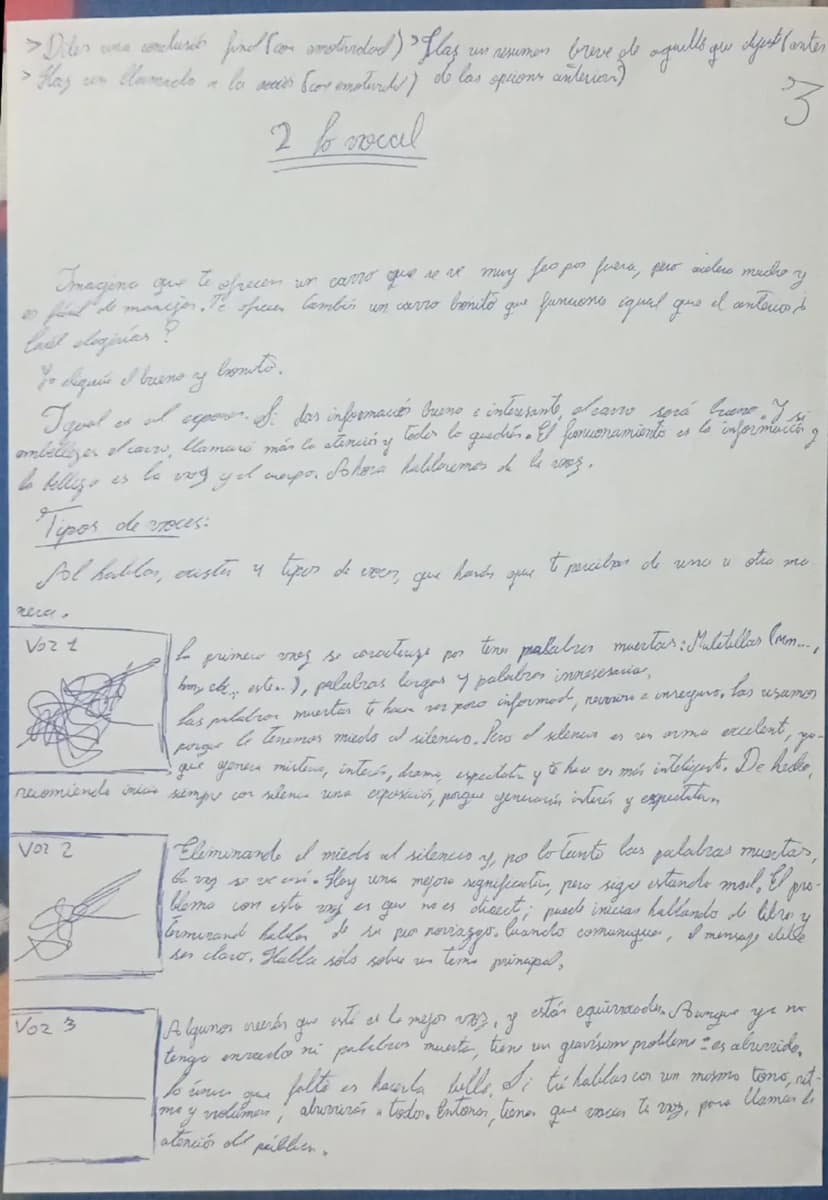 > Diles una conclusión final (con emotividad) > Haz un resumen breve de aquello que dijiste (antes
> Haz un llamado a la acción (con emotividad) de las opciones anteriores)
3
2 Lo vocal
Imagina que te ofrecen un carro que se ve muy feo por fuera, pero acelera mucho y
es fácil de manejar. Te ofrecen también un carro bonito que funciona igual que el anterior ¿
Cuál elegirías?
Yo elegiría el bueno y bonito.
Igual es al exponer. Si das información buena e interesante, el carro será bueno. Y si
embelleces el carro, llamará más la atención y todos lo querrán. El funcionamiento es la información y
la belleza es la voz y el cuerpo. Ahora hablaremos de la voz.
Tipos de voces:
Al hablar, existen 4 tipos de voces, que harán que te perciban de una u otra ma-
nera.
Voz 1
La primera voz se caracteriza por tener palabras muertas: Muletillas (mm...,
este...), palabras largas y palabras innecesarias.
Las palabras muertas te hacen ver poco informado, nervioso e inseguro. Las usamos
porque le tenemos miedo al silencio. Pero el silencio es un arma excelente, ya
que genera misterio, interés, drama, expectativa y te hace ver más inteligente. De hecho,
recomiendo iniciar siempre con silencio una exposición, porque generarás interés y expectativa.
Voz 2
Eliminando el miedo al silencio y, por lo tanto las palabras muertas,
la voz se ve así. Hay una mejora significativa, pero sigue estando mal. El pro-
blema con esta voz es que no es directa; puede iniciar hablando de libros y
terminando hablar de su noviazgo. Cuando comuniques, el mensaje debe
ser claro. Habla sólo sobre un tema principal.
Voz 3
Algunos creerán que esta es la mejor voz, y están equivocados. Aunque ya no
tenga enredo ni palabras muertas, tiene un gravísimo problema: es aburrida.
Lo único que falta es hacerla bella. Si tú hablas con un mismo tono, rit-
mo y volumen, aburrirás a todos. Entonces, tienes que variar tu voz, para llamar la
atención del público.